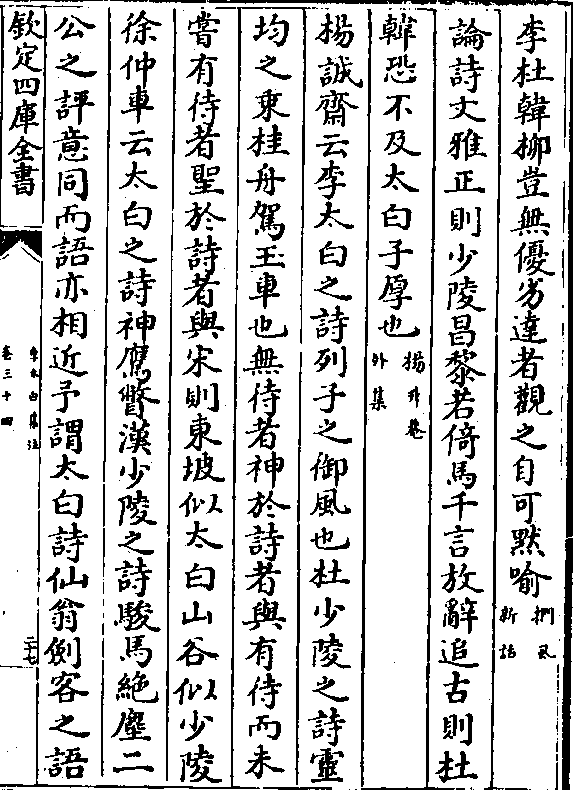 李杜韓柳豈無優劣達者觀之自可默喻
捫虱
新話
論詩文雅正則少陵昌黎若倚馬千言放辭追古則杜
韓恐不及太白子厚也
楊升菴
外集
楊誠齋云李太白之詩列子之御風也杜少陵之詩靈
均之乗桂舟駕玉車也無侍者神於詩者與有侍而未
嘗有侍者聖於詩者與宋則東坡似太白山谷似少陵
徐仲車云太白之詩神鷹瞥漢少陵之詩駿馬絶塵二
公之評意同而語亦相近予謂太白詩仙翁劍客之語
欽定四庫全書
李太白集注
卷三十四